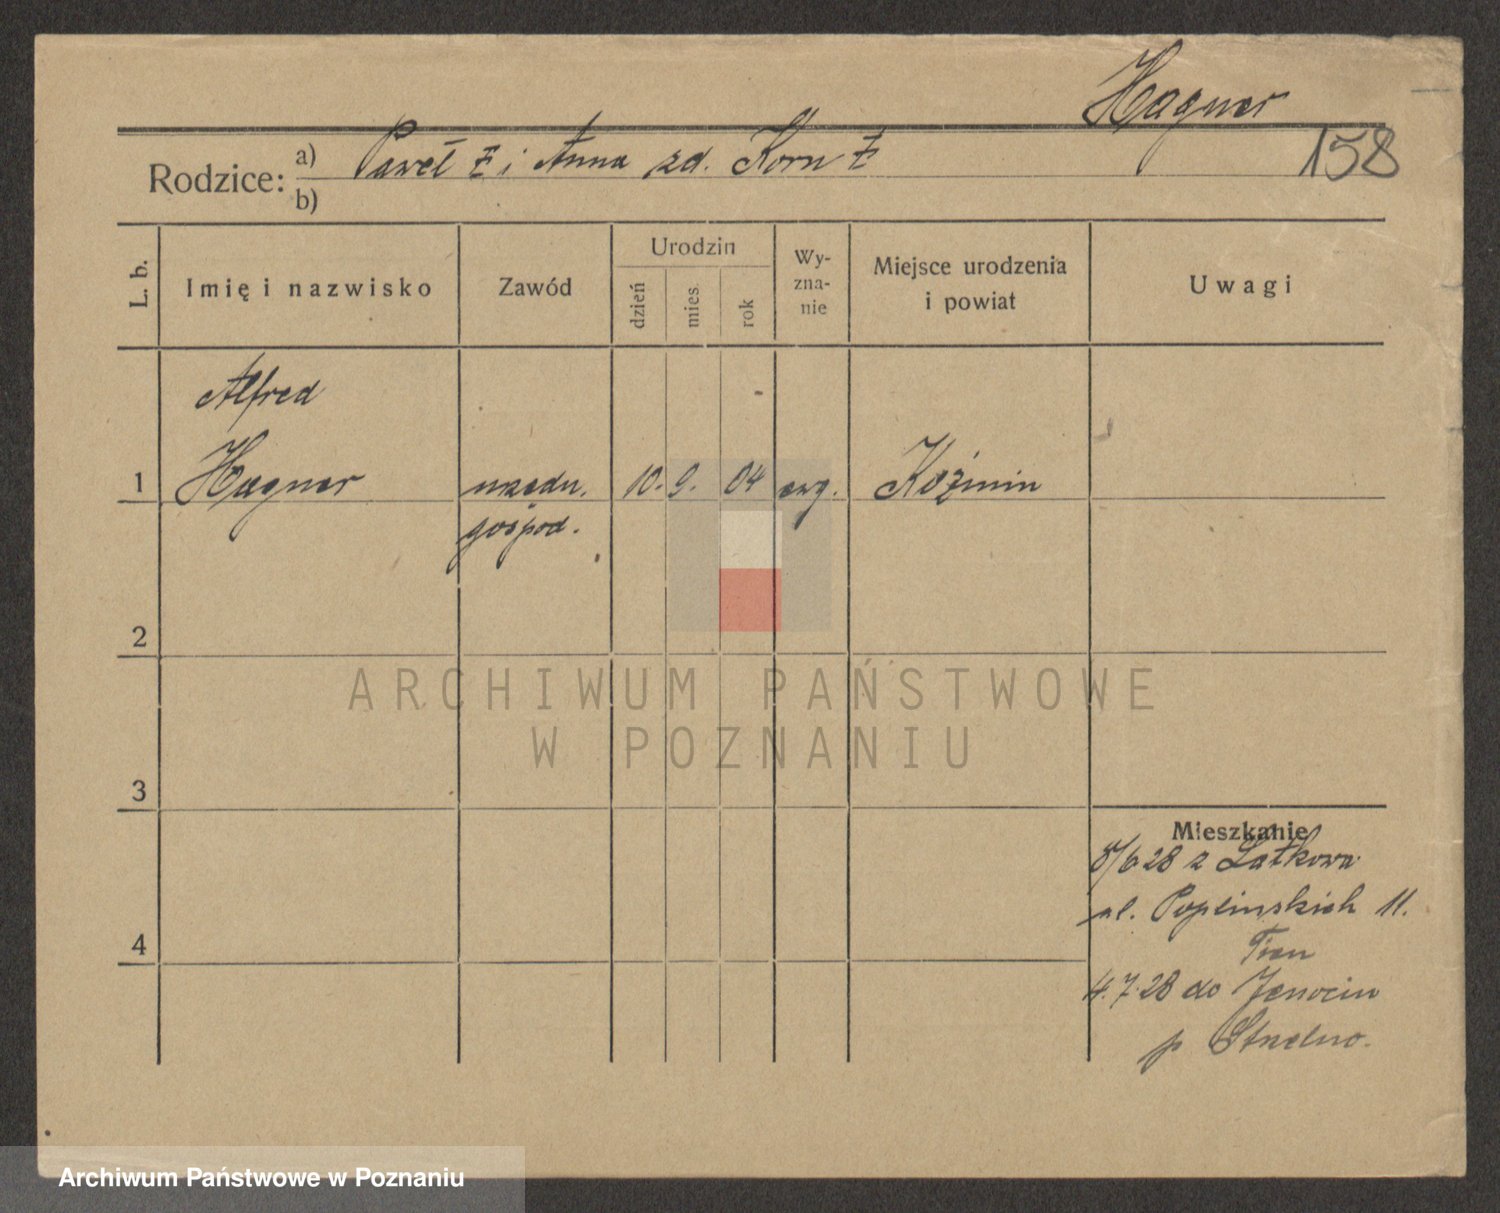 Hagner
158
Rodzice: a) Paweł ż i Anna zd. Korn ż
b)
L. b.
Imię i nazwisko
Zawód
Urodzin
dzień
mies.
rok
Wy-
zna-
nie
Miejsce urodzenia
i powiat
Uwagi
Alfred
1 Hagner urzędn. 10. 9. 04 ewg. Koźmin
gospod.
2
3
4
Mieszkanie
8/6 28 z Łatkowa
ul. Poplinskich 11.
4.7.28 do
p Strzelno.
ARCHIWUM PAŃSTWOWE
W POZNANIU
Archiwum Państwowe w Poznaniu